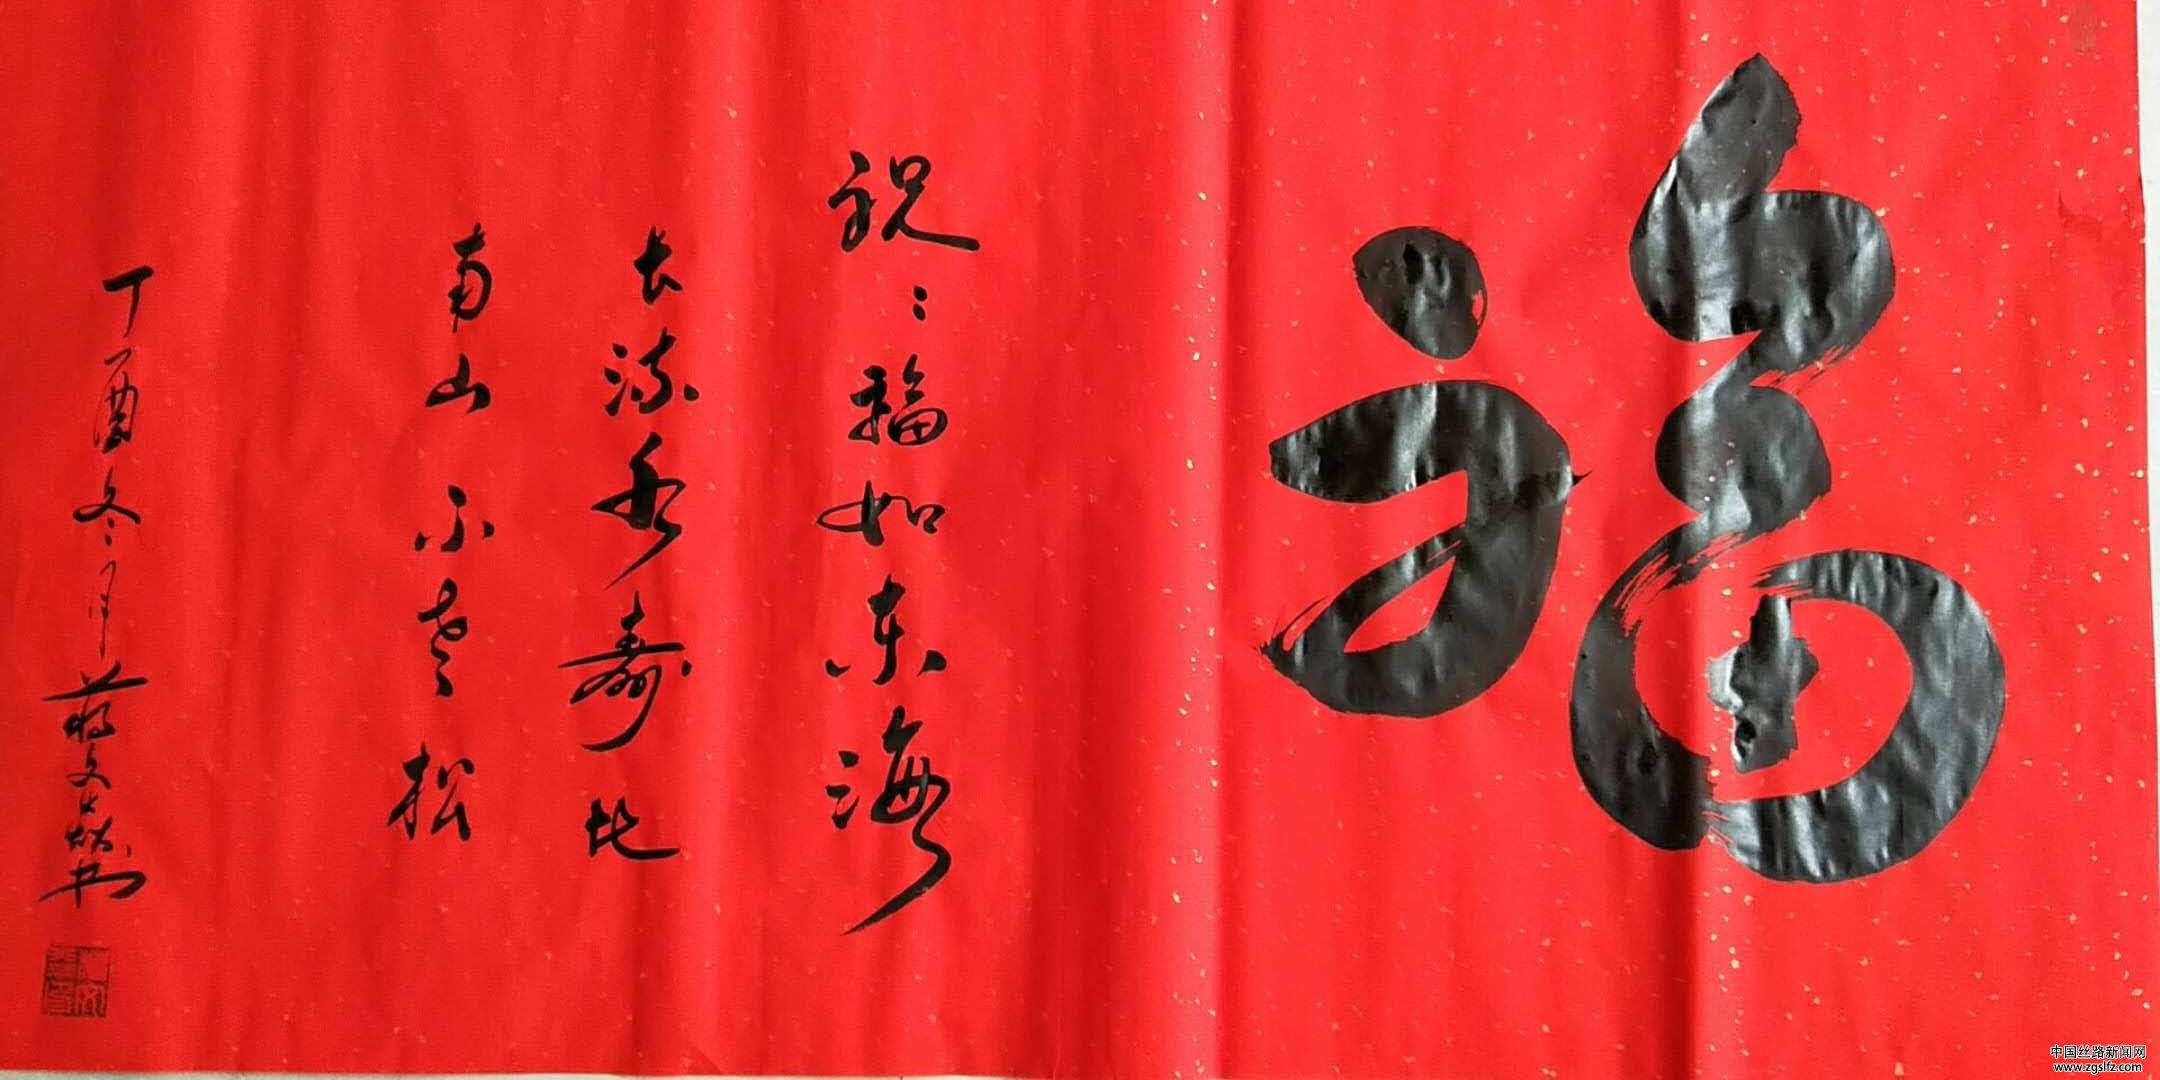 福
祝:福如东海
长流水寿比
南山不老松
丁酉冬月蒋文焱书
中国丝路新闻网
www.zgslfz.com